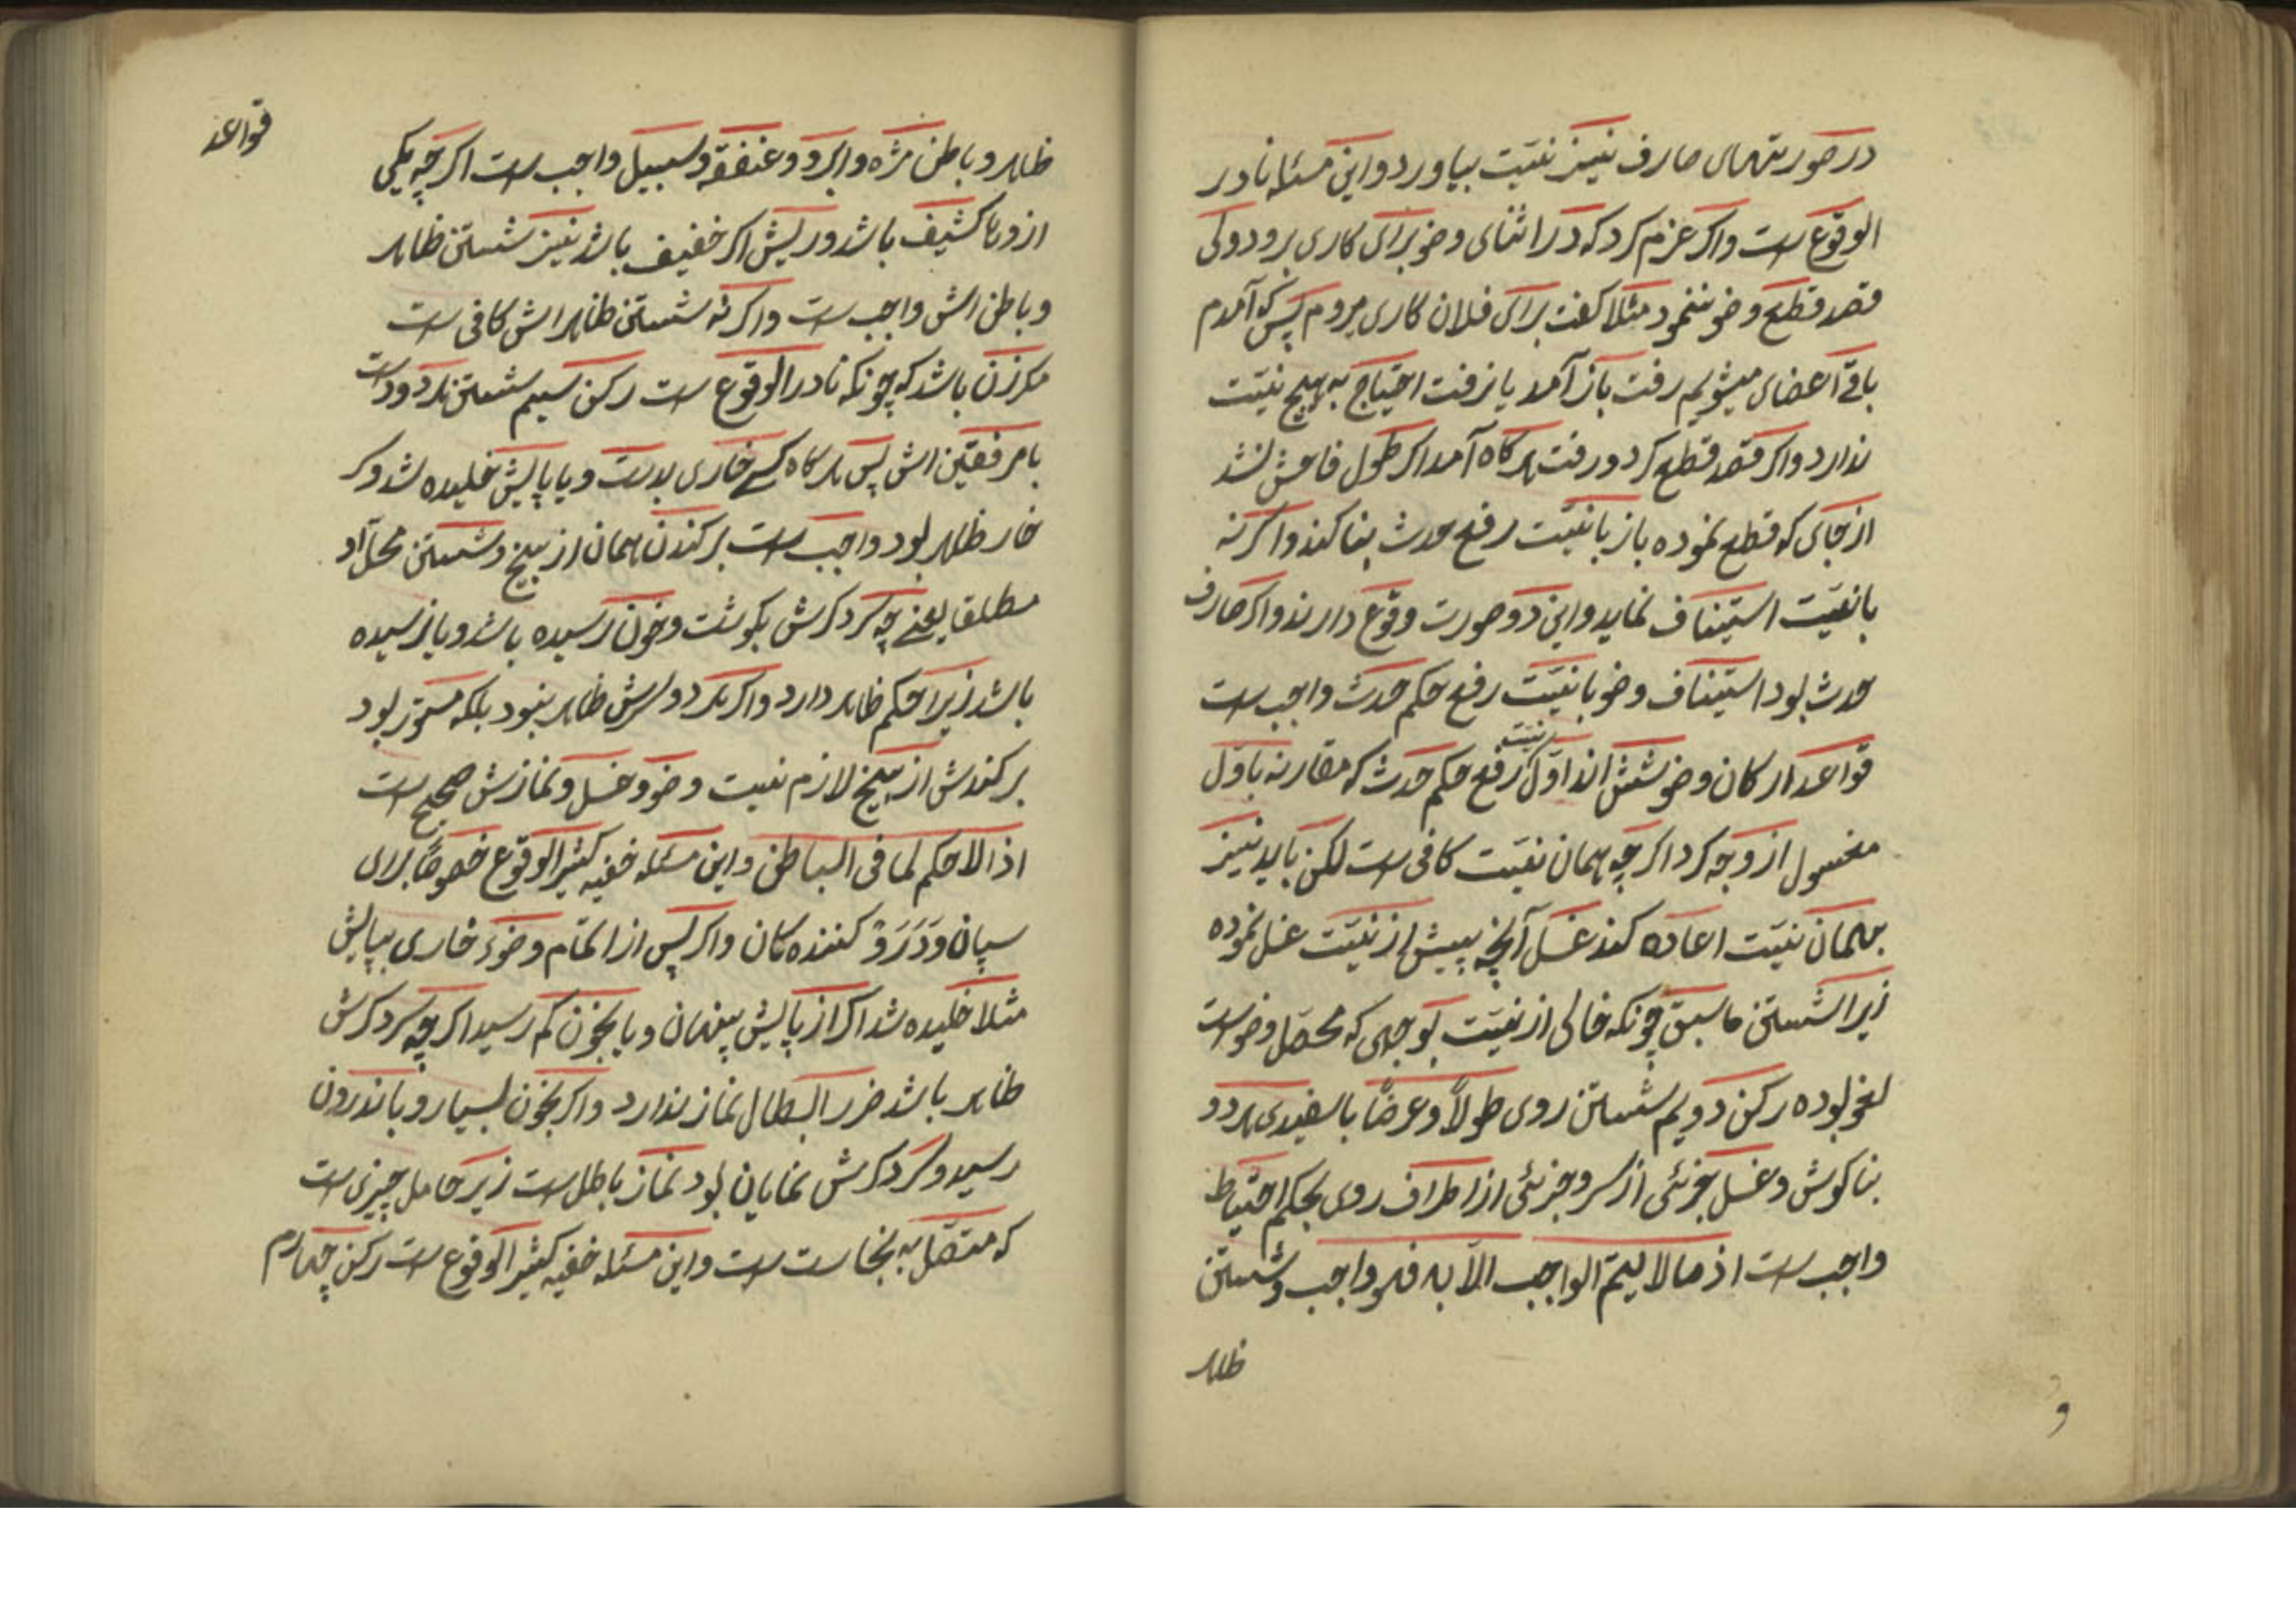 در صورتهای صارف نیز نیّت بیاورد و این مسئله نادر
الوقوع است و اگر عزم کرد که در اثنای وضو برای کاری برود ولی
قصد قطع وضو ننمود مثلا گفت برای فلان کاری میروم پس که آمدم
باقی اعضای میشویم رفت باز آمد یا نرفت احتیاج به هیچ نیّت
ندارد و اگر قصد قطع کرد و رفت هر گاه آمد اگر طول فاحش نشد
از جای که قطع نموده باز با نیّت رفع حدث بنا کند و اگر نه
با نیّت استیناف نماید و این دو صورت وقوع دارند و اگر صارف
حدث بود استیناف وضو با نیّت رفع حکم حدث واجب است
قواعد ارکان وضو شش اند اوّل نیّت رفع حکم حدث که مقارنه باوّل
مغسول از وجه کرد اگر چه همان نیّت کافی است لکن باید نیز
بهمان نیّت اعاده کند غسل آنچه پیش از نیّت غسل نموده
زیرا شستن ما سبق چونکه خالی از نیّت بوجهی که محصّل وضو است
لغو بوده رکن دویم شستن روی طولاً و عرضًا با سفیدی هر دو
بناکوش و غسل جزئی از سر و جزئی از اطراف روی بحکم احتیاط
واجب است اذ ما لا یتمّ الواجب الاّ به فهو واجب و شستن
ظاهر
قواعد
ظاهر و باطن مژه و ابرو و عنفقه و سبیل واجب است اگر چه یکی
ازوها کثیف باشد و ریش اگر خفیف باشد نیز شستن ظاهر
و باطن اش واجب است و اگر نه شستن ظاهر اش کافی است
مگر زن باشد که چونکه نادر الوقوع است رکن سیم شستن هر دو دست
با مرفقین اش پس هر گاه کسی خاری بدست و یا پایش خلیده شد و گر
خار ظاهر بود واجب است برکندن همان از بیخ و شستن محلّ آو
مطلقا یعنی چه سر دکرش بگوشت و خون رسیده باشد و یا نرسیده
باشد زیرا حکم ظاهر دارد و اگر هر دو سرش ظاهر نبود بلکه مستور بود
برکندش از بیخ لازم نیست وضو و غسل و نمازش صحیح است
اذ لا حکم لما فی الباطن و این مسئله خفیه کثیر الوقوع خصوصًا برای
سپان و دَرَوْ کننده کان و اگر پس از اتمام وضوء خاری بپایش
مثلا خلیده شد اگر از پایش پنهان و یا بخون کم رسید اگر چه سر دکرش
ظاهر باشد ضرر ابطال نماز ندارد و اگر بخون بسیار و با ندرون
رسید و سر دکرش نمایان بود نماز باطل است زیر حامل چیزی است
که متصّل به نجاست است و این مسئله خفیه کثیر الوقوع است رکن چهارم